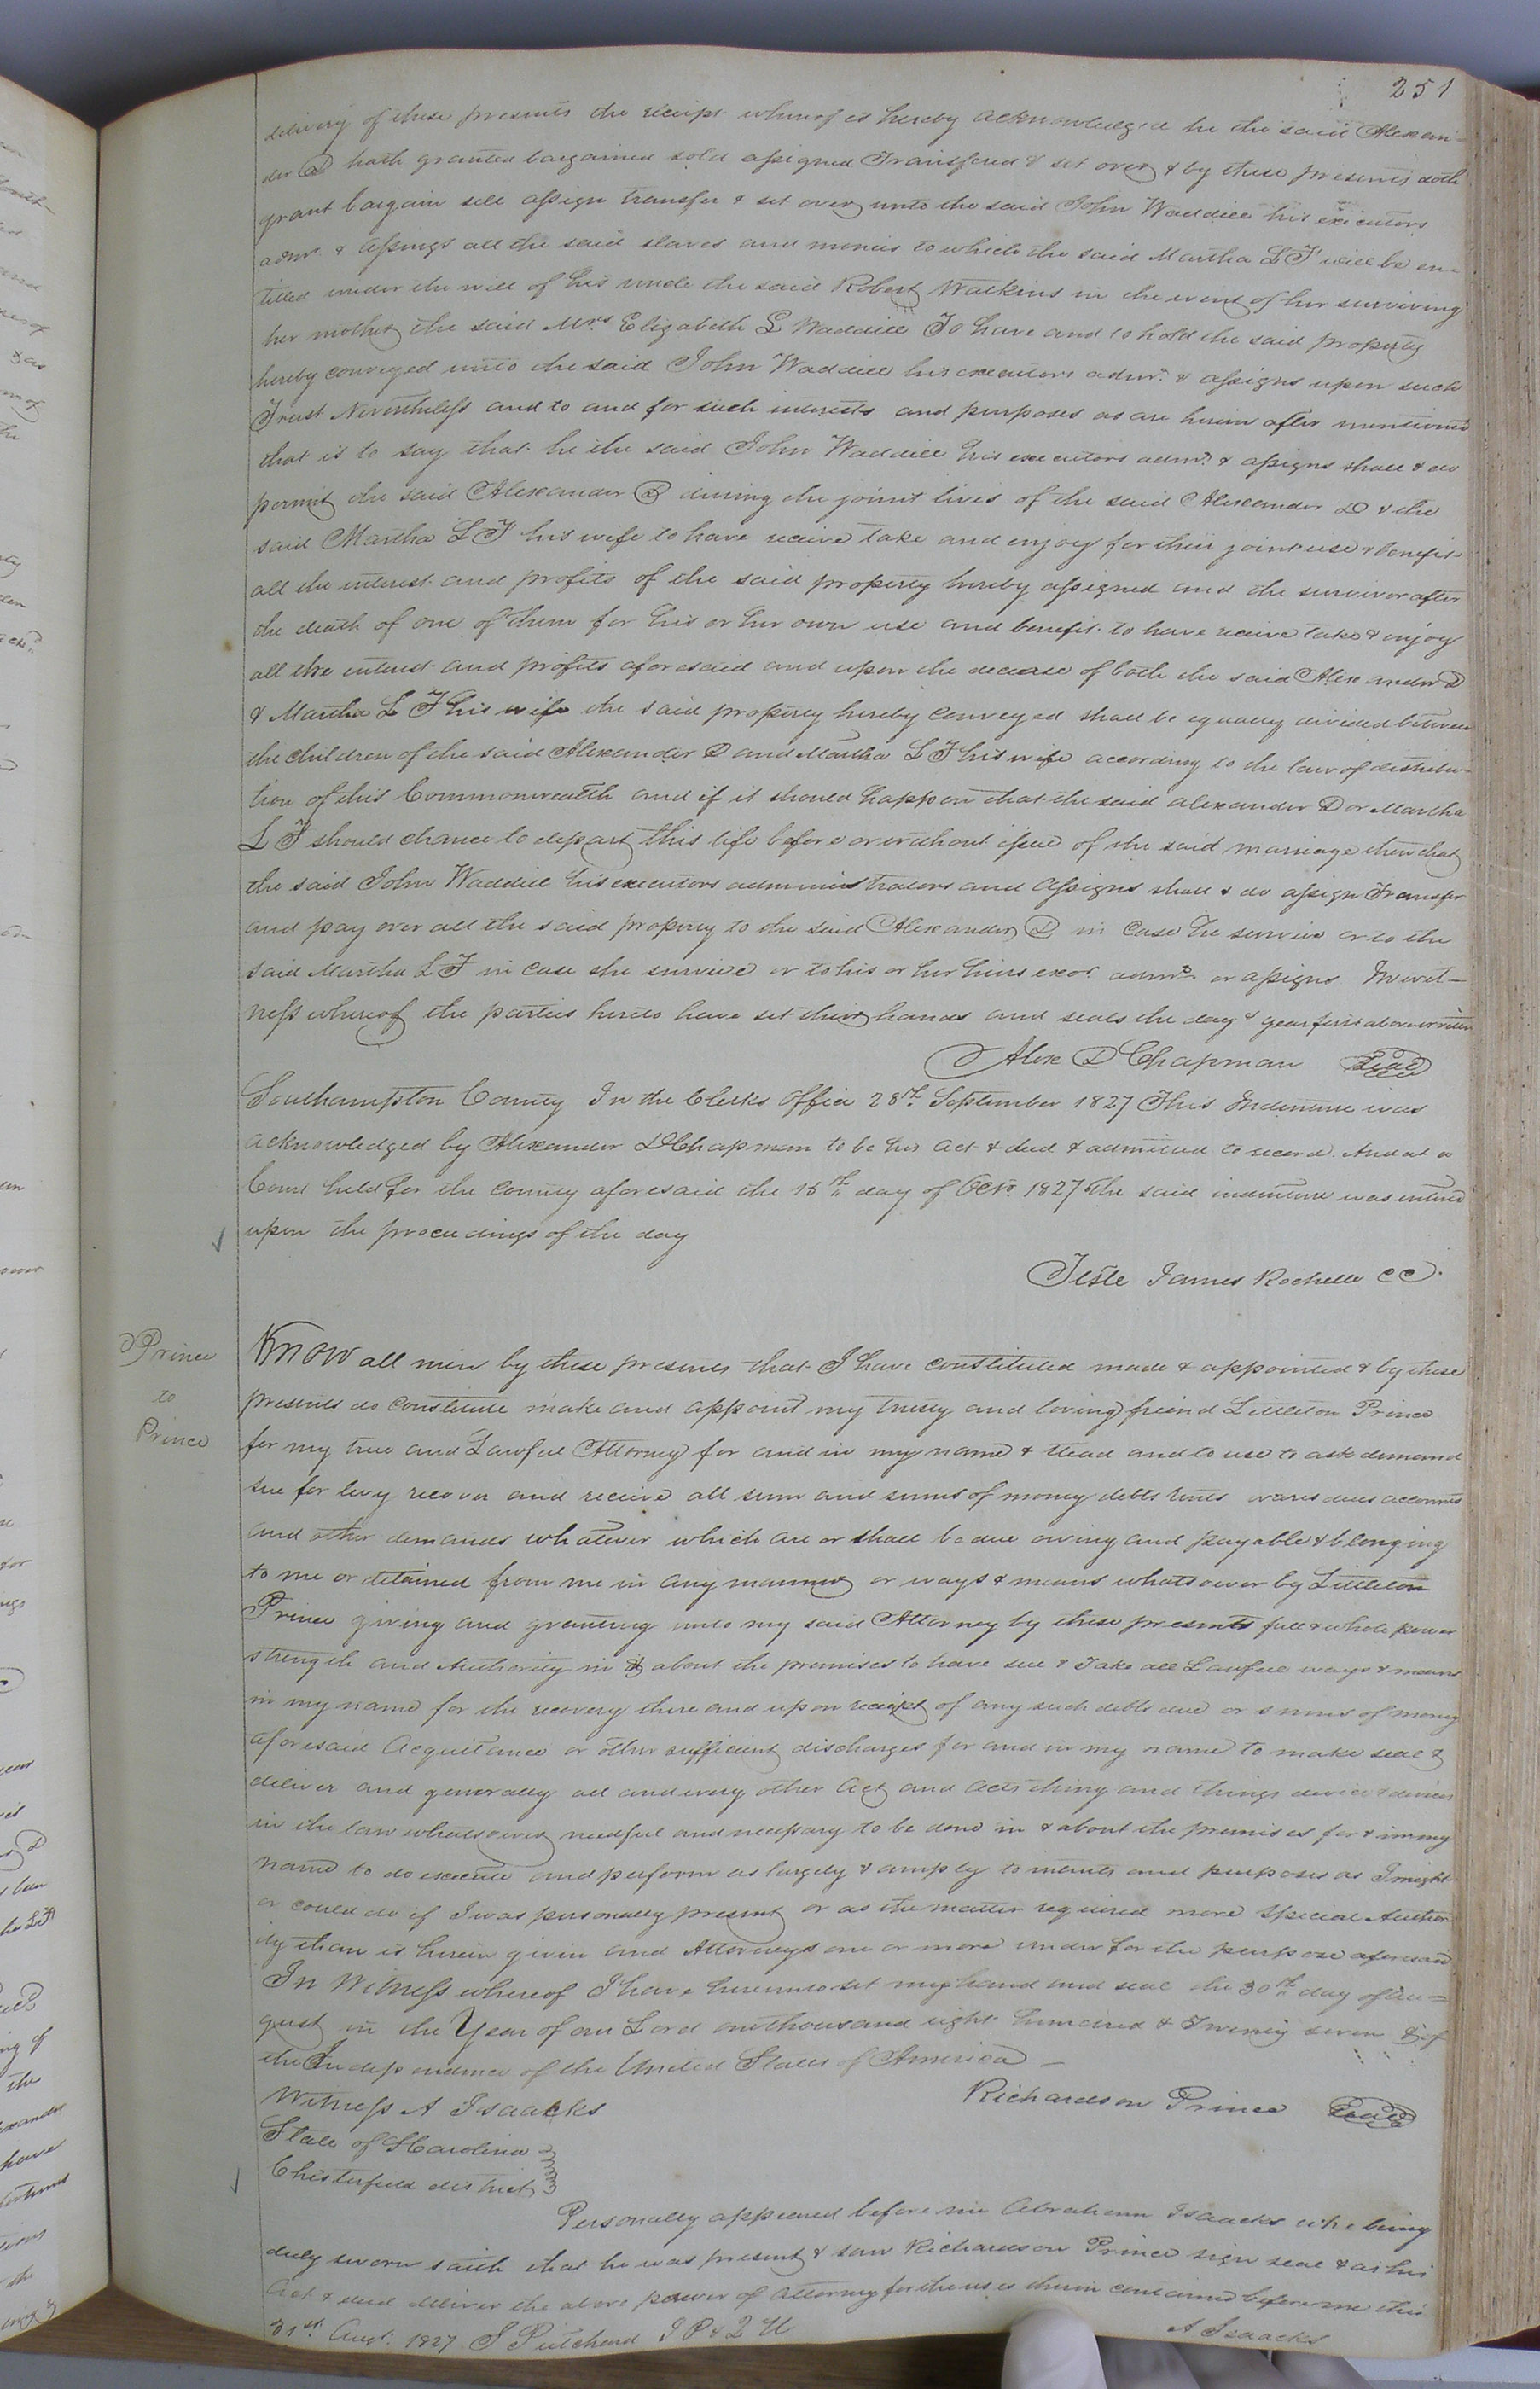 251
delivery of these presents the receipt whereof is hereby acknowledged he the said Alexan-
der D hath granted bargained sold assigned Transfered & set over & by these presents doth
grant bargain sell assign transfer & set over unto the said John Waddill his executors
admr. & assings all the said slaves and monies to which the said Martha L T will be en-
titled under the will of his uncle the said Robert Watkins in the event of her surviving
her mother the said Mrs Elizabeth L Waddill To have and to hold the said property
hereby conveyed unto the said John Waddill his executors admr. & assigns upon such
Trust Nevertheless and to and for such interests and purposes as are herein after mentioned
that is to say that he the said John Waddill his executors admr. & assigns shall & do
permit the said Alexander D during the joint lives of the said Alexander D & the
said Martha L T his wife to have receive take and enjoy for their joint use & benefit
all the interest and profits of the said property hereby assigned and the survivor after
the death of one of them for his or her own use and benefit to have receive take & enjoy
all the interest and profits aforesaid and upon the decease of both the said Alexander D
& Martha L T his wife the said property hereby conveyed shall be equally divided between
the children of the said Alexander D and Martha L T his wife according to the law of distribu-
tion of this Commonwealth and if it should happen that the said alexander D or Martha
L T should chance to depart this life before or without issue of the said marriage then that
the said John Waddill his executors administrators and assigns shall & do assign Transfer
and pay over all the said property to the said Alexander D in case he survive or to the
said Martha L T in case she survive or to his or her heirs exor. admrs. or assigns In wit-
ness whereof the parties hereto have set their hands and seals the day & year first above written
Alex D Chapman Seal
Southampton County In the Clerks Office 28th September 1827 This Indenture was
acknowledged by Alexander D Chapman to be his act & deed & admitted to record. And at a
Court held for the County aforesaid the 15th day of Octr. 1827 The said indenture was entered
upon the proceedings of the day
Teste James Rochelle CC.
Prince
to
Prince
Know all men by these presents that I have constituted made & appointed & by these
presents do constitute make and appoint my trusty and loving friend Littleton Prince
for my true and Lawful Attorney for and in my name & stead and to use to ask demand
sue for levy recover and receive all sum and sums of money debts rents wares dues accounts
and other demands whatever which are or shall be due owing and payable & blonging
to me or detained from me in any manner or ways & means whatsoever by Littleton
Prince giving and granting unto my said Attorney by these presents full & whole power
strength and Authority in & about the premises to have sue & Take all Lawful ways & means
in my name for the recovery there and upon receipt of any such debts due or sums of money
aforesaid Acquitance or other sufficient discharges for and in my name to make seal &
deliver and generally all and every other Act and Acts thing and things device & devices
in the law whatsoever needful and necessary to be done in & about the premises for & in my
name to do execute and perform as largely & amply to intents and purposes as I might
or could do if I was personally present or as the matter required more special Author
ity than is herein given and Attorneys one or more under for the purpose aforesaid
In Witness whereof I have hereunto set my hand and seal the 30th day of Au=
gust in the Year of our Lord one thousand eight hundred & Twenty seven & of
the Independence of the United States of America
Witness A Isaacks Richardson Prince Seal
State of S Carolina
Chesterfield district
Personally appeared before me Abraham Isaacks who being
duly sworn saith that he was present & saw Richardson Prince sign seal & as his
act & deed deliver the above power of attorney for the uses therin contained before me this
31st. Augt. 1827 S Pritchard J P & Q U A Isaacks